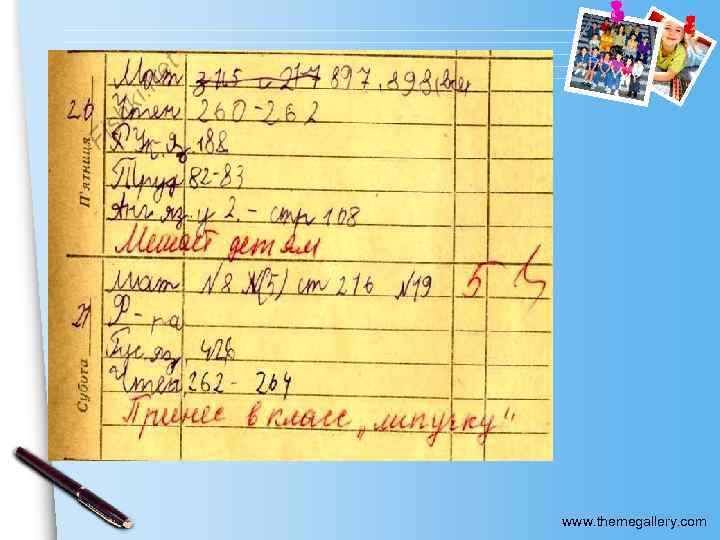 П'ятниця
26
Мат 897, 898,
Чтен 260-262
Р у. яз. 188
Труд 82-83
Анг яз. у 2. - стр 168
Мешает детям
Субота
27
Мат №8 №(5) ст 216 №19 5
Ф-ра
Рус яз, 426
Чтен, 262 - 264
Принес в класс „липучку"
www.themegallery.com